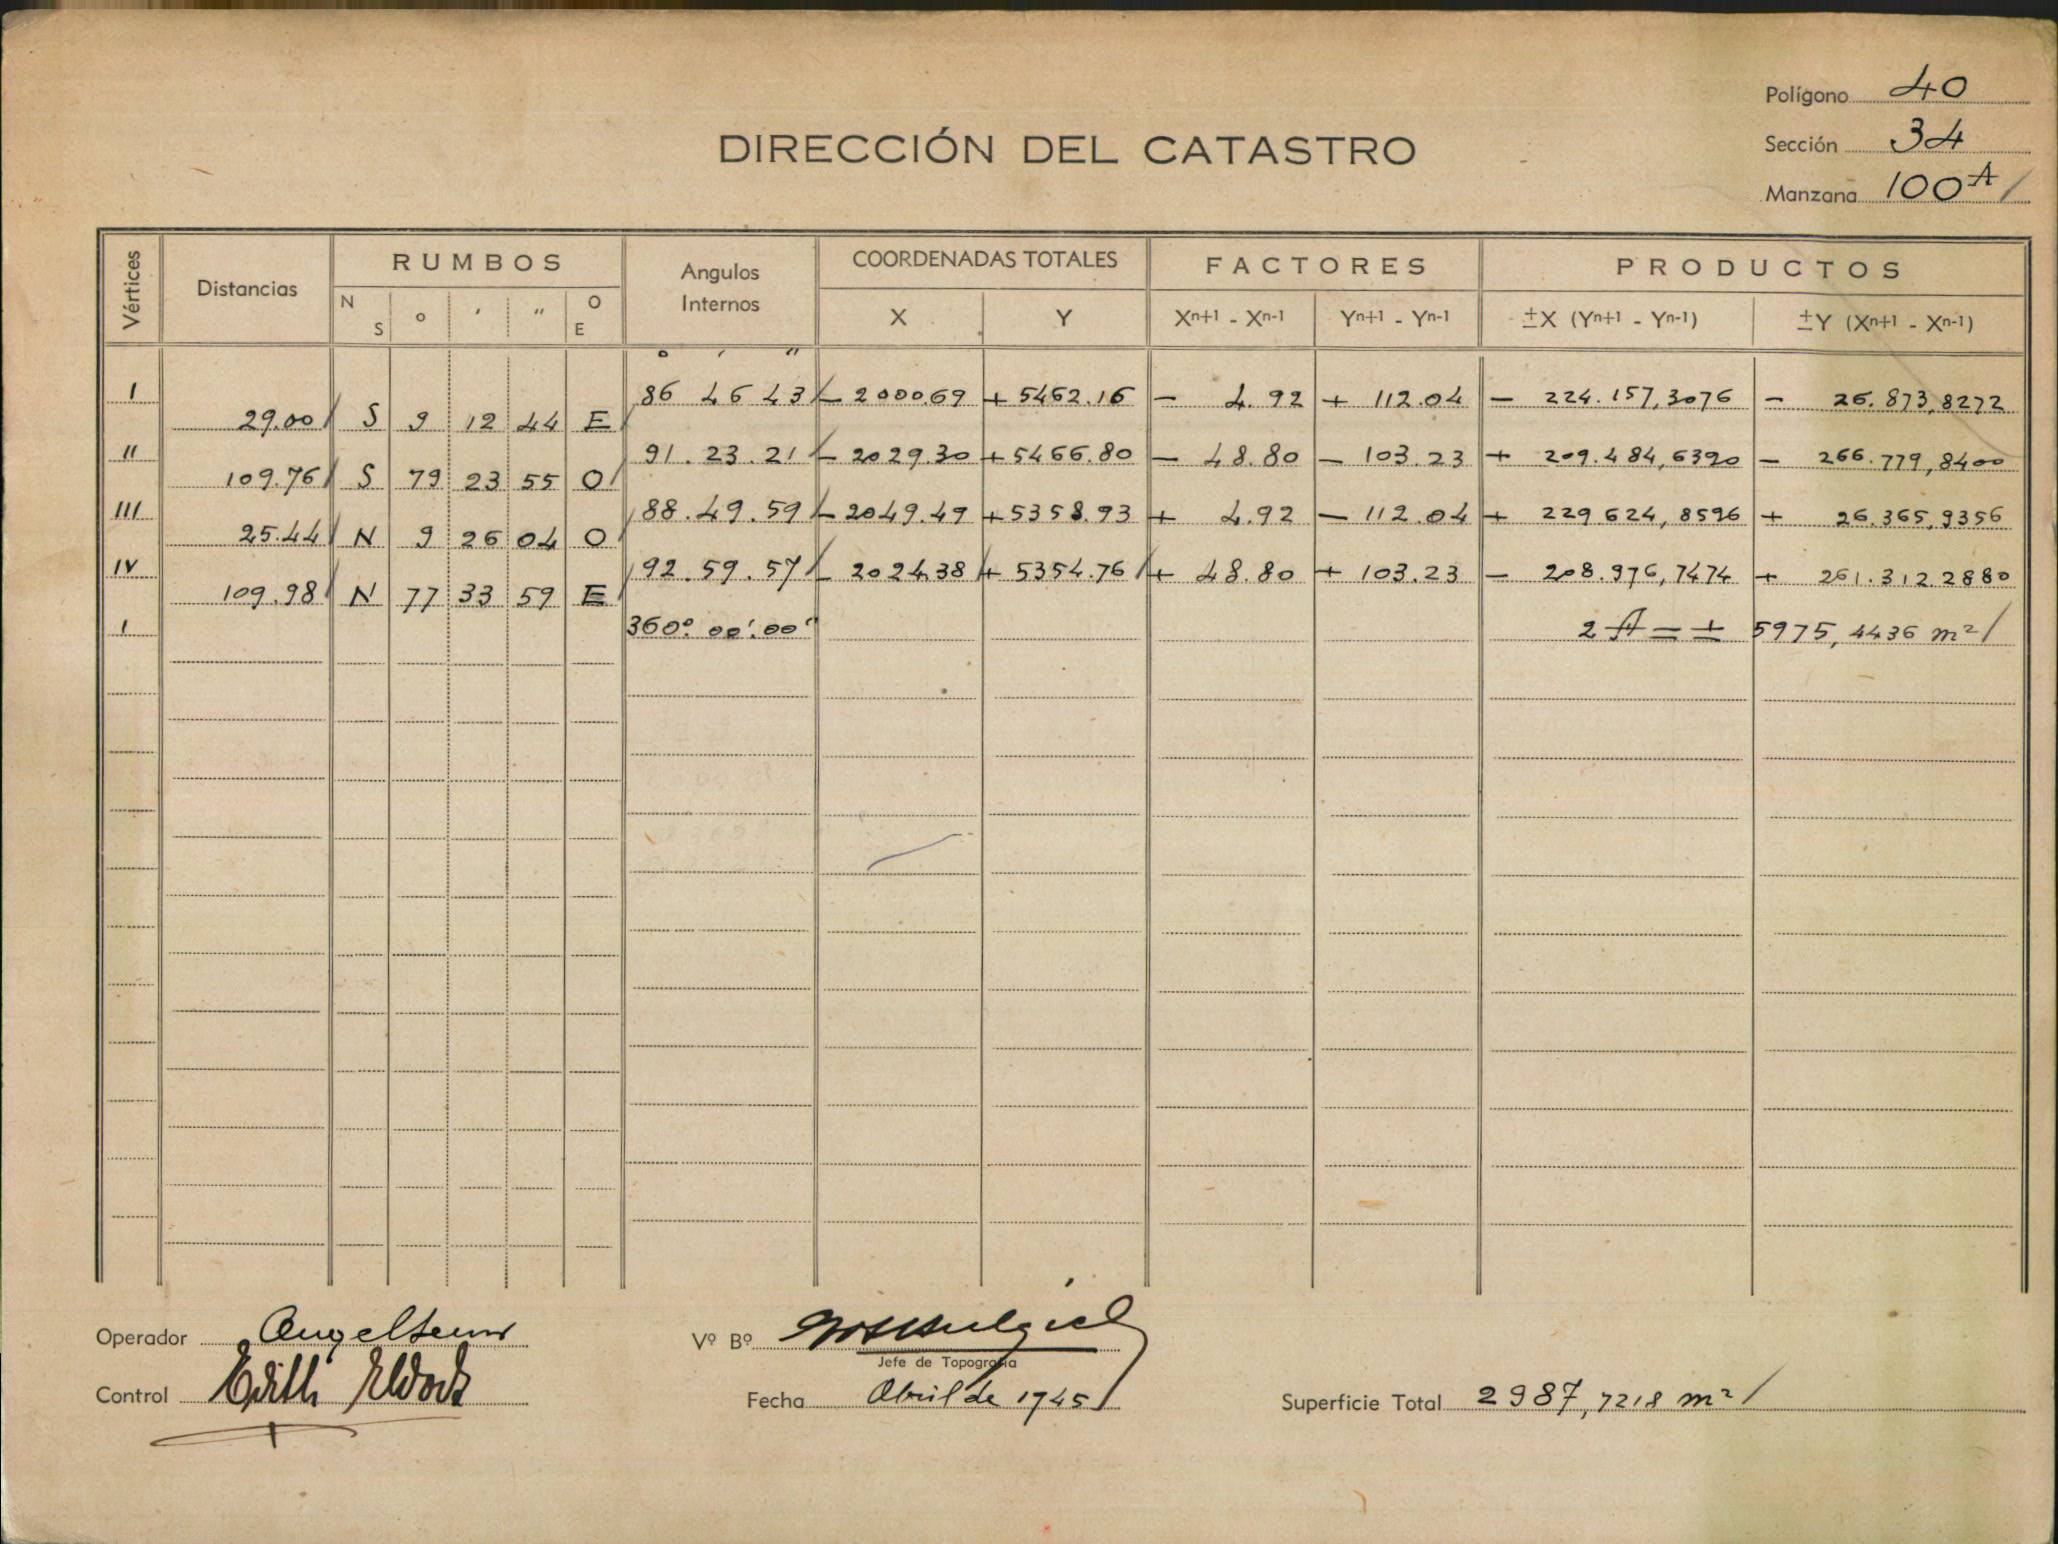 Polígono 40
DIRECCIÓN DEL CATASTRO
Sección 34
Manzana 100A /
Vértices Distancias RUMBOS Angulos Internos COORDENADAS TOTALES FACTORES PRODUCTOS
N S ° ′ ″ O E X Y Xn+1 - Xn-1 Yn+1 - Yn-1 ±X (Yn+1 - Yn-1) ±Y (Xn+1 - Xn-1)
° ′ ″
I 86 46 43 / - 2000.69 + 5462.16 - 4.92 + 112.04 - 224.157,3076 - 26.873,8272
29.00 / S 9 12 44 E /
II 91.23.21 / - 2029.30 + 5466.80 - 48.80 - 103.23 + 209.484,6390 - 266.779,8400
109.76 / S 79 23 55 O /
III 88.49.59 / - 2049.49 + 5358.93 + 4.92 - 112.04 + 229 624,8596 + 26.365,9356
25.44 / N 9 26 04 O /
IV 92.59.57 / - 2024.38 / + 5354.76 / + 48.80 + 103.23 - 208.976,7474 + 261.312 2880
109.98 / N 77 33 59 E /
I 360°.00'.00" 2 A = ± 5975,4436 m² /
Operador
Vº Bº
Jefe de Topografía
Control Edith
Fecha Abril de 1945 /
Superficie Total 2987,7218 m² /